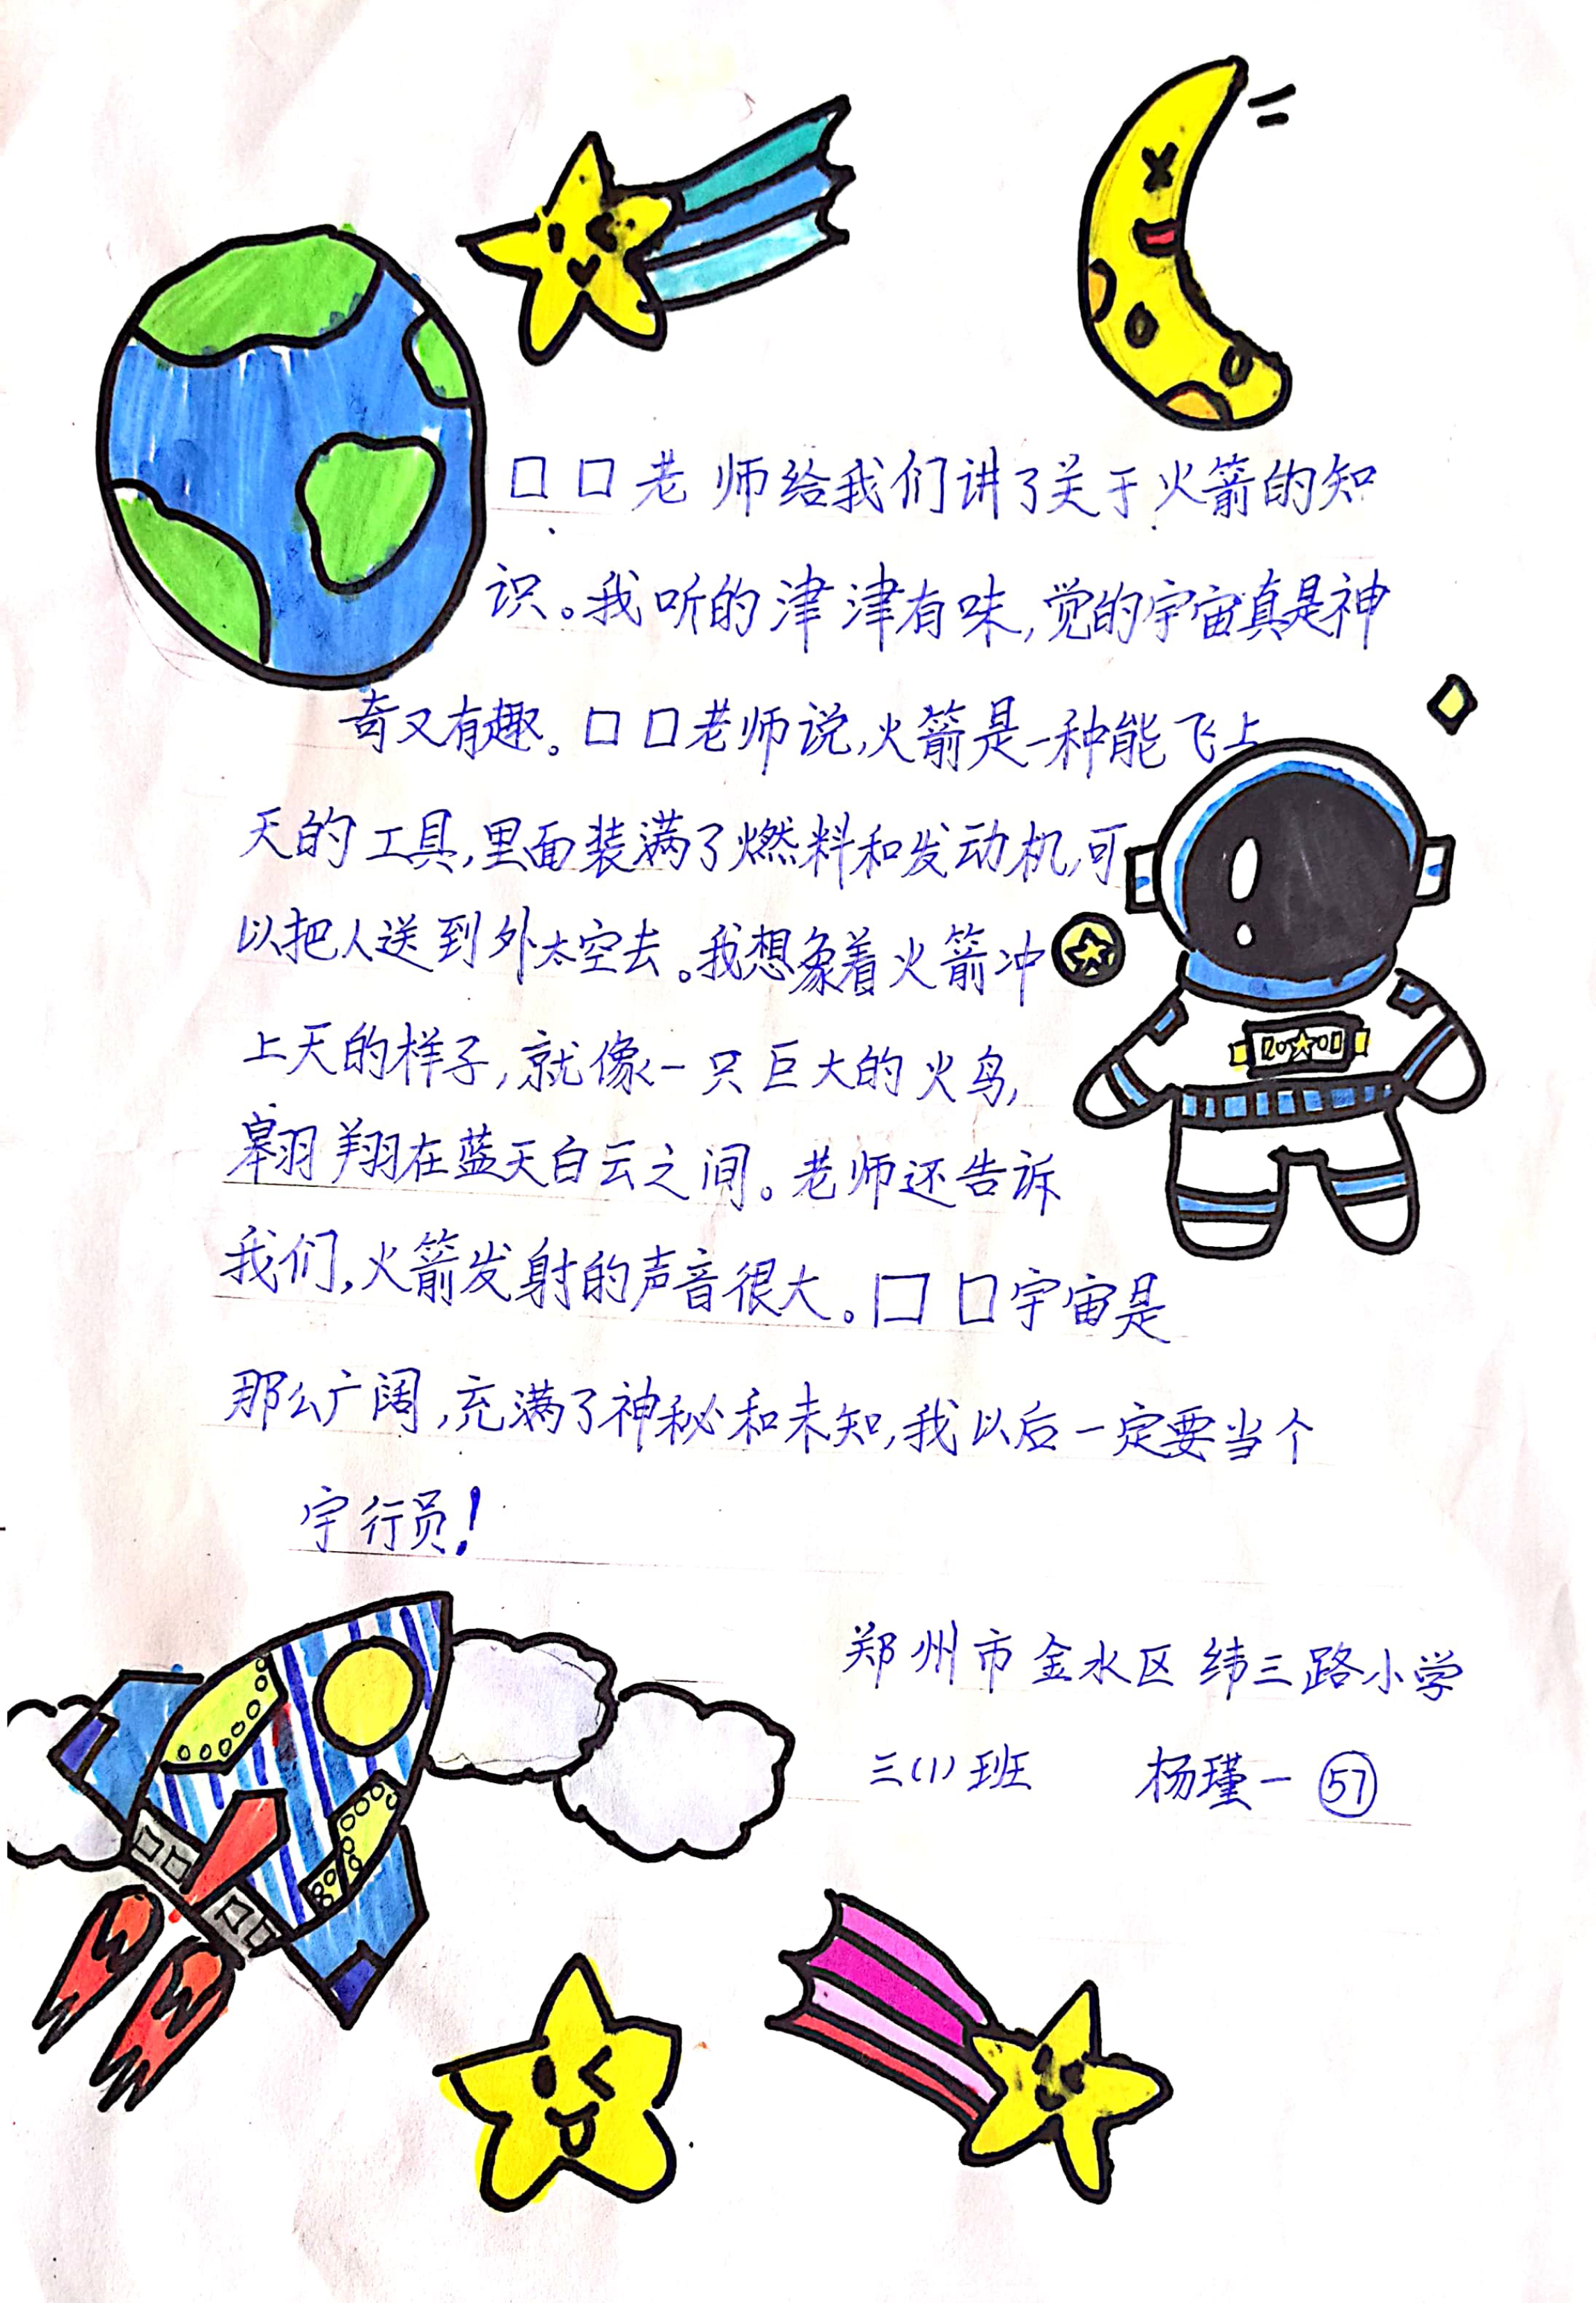 □□老师给我们讲了关于火箭的知
识。我听的津津有味,觉的宇宙真是神
奇又有趣。□□老师说,火箭是一种能飞上
天的工具,里面装满了燃料和发动机,可
以把人送到外太空去。我想象着火箭冲
上天的样子,就像一只巨大的火鸟,
翱翔在蓝天白云之间。老师还告诉
我们,火箭发射的声音很大。□□宇宙是
那么广阔,充满了神秘和未知,我以后一定要当个
宇行员!
郑州市金水区纬三路小学
三(1)班 杨瑾一 57